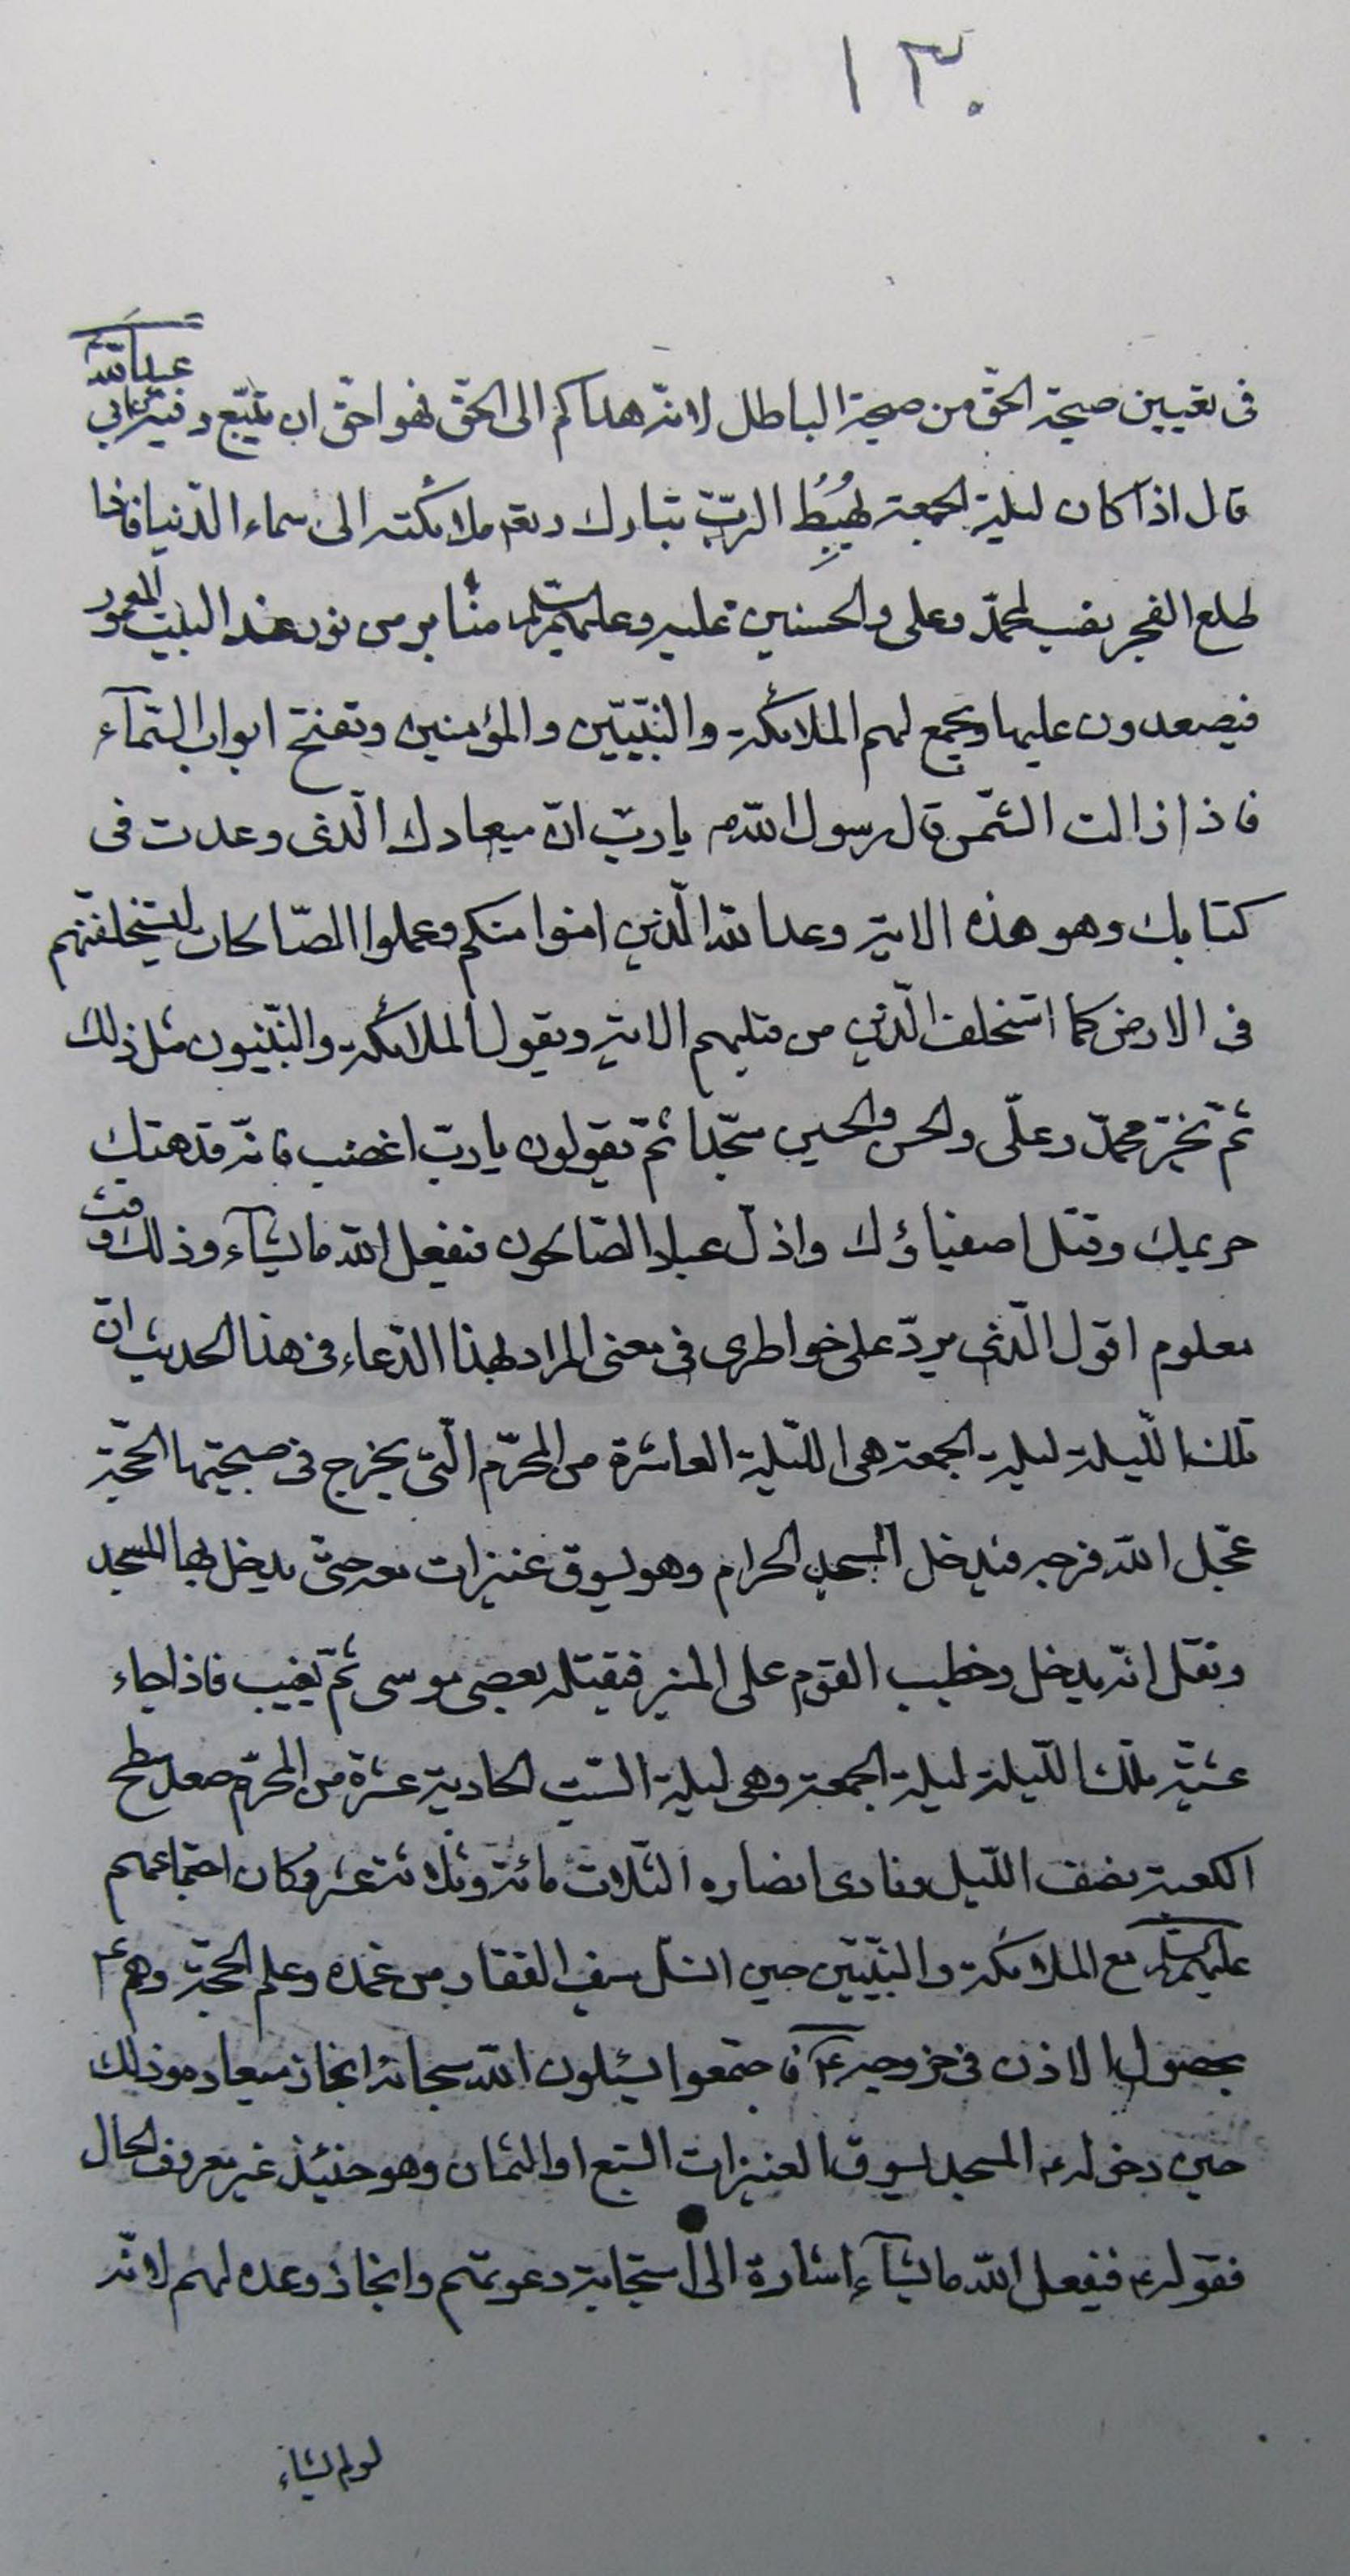 ١٣٠
فى تعيين صيحة الحقّ من صيحة الباطل لانّه هداكم الى الحقّ فهو احقّ ان يتّبع وفيه عن ابي عبد الله
قال اذا كان ليلة الجمعة يُهبِطُ الربّ تبارك وتعه ملائكته الى سماء الدّنيا فاذا
طلع الفجر نصب لمحمّد وعلى والحسنين عليه وعليهم السلام منابر من نور عند البيت المعمور
فيصعدون عليها ويجمع لهم الملائكة والنبّيّين والمؤمنين وتفتح ابواب السّمآء
فاذا زالت الشّمس قال رسول الله ص يا ربّ انّ ميعادك الّذى وعدت فى
كتابك وهو هذه الاية وعد الله الّذين امنوا منكم وعملوا الصّالحات ليستخلفنّهم
فى الارض كما استخلف الّذين من قبلهم الاية ويقول الملائكة والنّبيّون مثل ذلك
ثمّ يخرّ محمّد وعلّى والحسن والحسين سجّدا ثمّ يقولون يا ربّ اغضب فانّه قد هتك
حريمك وقتل اصفياؤك واذلّ عبادك الصّالحون فيفعل الله ما يشآء وذلك وقت
معلوم اقول الّذى يردّ على خواطرى فى معنى المراد لهذا الدّعاء فى هذا الحديث انّ
تلك اللّيلة ليلة الجمعة هى اللّيلة العاشرة من المحرّم الّتى يخرج فى صبحيتها الحجّة
عجّل الله فرجه فيدخل المسجد الحرام وهو يسوق عنيزات معه حتّى يدخل بها المسجد
ونقل انّه يدخل وخطيب القوم على المنبر فيقتله بعصى موسى ثمّ يغيب فاذا جاء
عشيّة تلك اللّيلة ليلة الجمعة وهى ليلة السّبت الحادية عشرة من المحرّم صعد سطح
الكعبة نصف اللّيل ونادى انصاره الثّلاث مائة وثلاثة عشر وكان اجتماعهم
عليهم السلام مع الملائكة والنّبيّين حين انسلّ سيف الفقار من غمده وعلم الحجّة وهم ع
بحصول الاذن فى خروجه ع فاجتمعوا يسئلون الله سبحانه انجاز ميعاده وذلك
حين دخوله ع المسجد يسوق العنيزات السّبع او الثمان وهو حينئذ غير معروف الحال
فقوله ع فيفعل الله ما يشآء اشارة الى استجابة دعوتهم وانجاز وعده لهم لانّه
لو لم يشاء